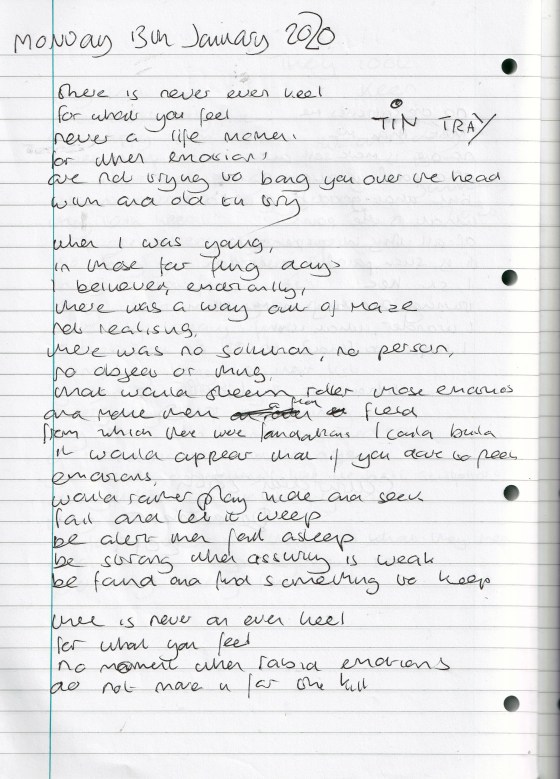 Monday 13th January 2020
TIN TRAY
there is never even keel
for what you feel
never a life moment
for when emotions
are not trying to bang you over the head
with and old tin tray
when I was young,
in those far flung days
I believed, emotionally,
there was a way out of maze
not realising,
there was no solution, no person,
no object or thing,
that would steer, those emotions
and make them a flat field
from which there were foundations I could build
it would appear that if you dare to peek
emotions,
would rather play hide and seek
fall and let it weep
be alert then fall asleep
be strong when is weak
be found and find something to keep
there is never an even keel
for what you feel
no moment when rabid emotions
do not move in for the kill